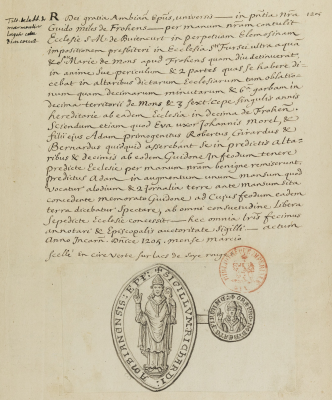 R Dei gratia Ambian Epūs, universis — in pñtia nra 1205
Guido Miles de Frohens — per manum nram contulit
Ecclesie S. M. de in perpetuam elemosinam
impositionem presbiteri in Ecclesia Sti Fursei ultra aqua
& Ste Marie de Mons apud Frohens quam diu detinuerat
in anime sue periculum & 2 partes quas se habere di-
cebat in altaribus dictarum Ecclesiarum tam oblatio-
num quam decimarum minutarum & 6am garbam in
decima territorii de Mons & 3 sext. cepe singulis annis
hereditarie ab eadem Ecclesia in decima de Frohen.
Sciendum etiam quod Eva uxor Johannis Morel, &
filii ejus Adam primogenitus Robertus Girardus &
Bernardus quidquid asserebant se in predictis Alta-
ribus & decimis ab eodem Guidone in feodum tenere
predicte Ecclesie per manum nram benigne remiserunt,
predictus Adam in augmentum unum mansum quod
vocatur alodium & 2 Jornalia terre ante mansum sita
concedente memorato Guidone ad cujus feodum eadem
terra dicebatur spectare, ab omni consuetudine libera
sepedicte Ecclesie concessit — hec omnia lris fecimus
annotari & Episcopalis auctoritate sigilli — actum
Anno Incarn. Dnice 1205. mense Marcio
scellé en cire verte sur lacs de soye rouge
SIGILLVM RICHARDI AMBIANENSIS EPI